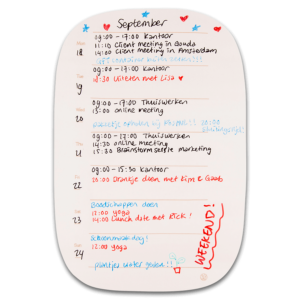 September
18
09:00 - 17:00 Kantoor
11:10 Client meeting in Gouda
14:30 Client meeting in Amsterdam
19
09:00 - 17:00 Kantoor
18:30 Uiteten met Lisa
20
09:00 - 17:00 Thuiswerken
15:00 online meeting
21
09:00 - 17:00 Thuiswerken
14:30 online meeting
15:30 Brainstorm selfie marketing
22
09:00 - 15:30 Kantoor
20:00 Drankje doen met Kim & Gaab
23
Boodschappen doen
12:00 yoga
14:00 Lunch date met Rick!
24
Schoonmaakdag!
12:00 yoga
plantjes water geven!
WEEKEND!